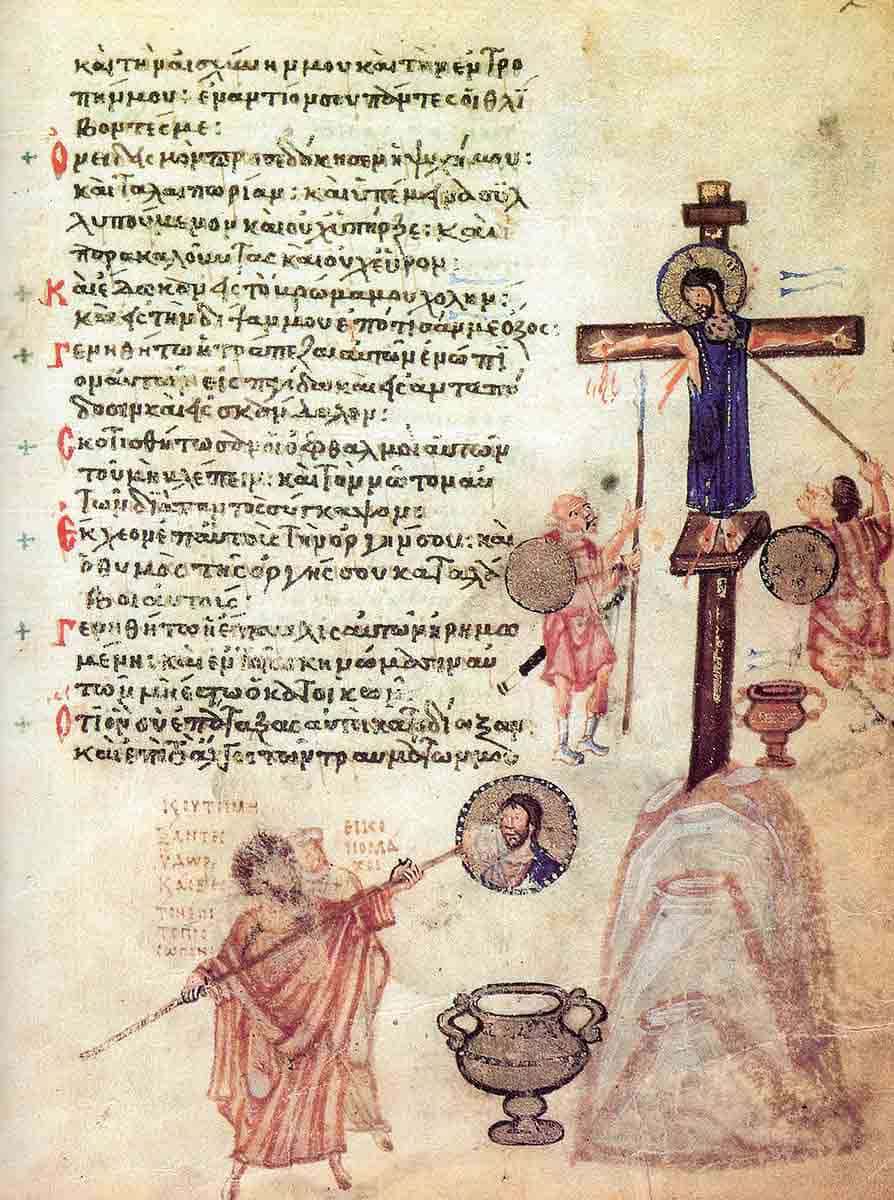 καὶ τὴν αἰσχύνην μου καὶ τὴν ἐντρο
πήν μου: ἐναντίον σου πάντες οἱ θλί
βοντές με:
Ὀνειδισμὸν προσεδόκησεν ἡ ψυχή μου:
καὶ ταλαιπωρίαν: καὶ ὑπέμεινα συλ
λυπούμενον καὶ οὐχ ὑπῆρξε: καὶ
παρακαλοῦντας καὶ οὐχ εὗρον:
Καὶ ἔδωκαν εἰς τὸ βρῶμά μου χολήν:
καὶ εἰς τὴν δίψαν μου ἐπότισάν με ὄξος:
Γενηθήτω ἡ τράπεζα αὐτῶν ἐνώπι
ον αὐτῶν εἰς παγίδα καὶ εἰς ἀνταπό
δοσιν καὶ εἰς σκάνδαλον:
Σκοτισθήτωσαν οἱ ὀφθαλμοὶ αὐτῶν
τοῦ μὴ βλέπειν: καὶ τὸν νῶτον αὐ
τῶν διὰ παντὸς σύγκαμψον:
Ἔκχεον ἐπ' αὐτοὺς τὴν ὀργήν σου: καὶ
ὁ θυμὸς τῆς ὀργῆς σου καταλά
βοι αὐτούς:
Γενηθήτω ἡ ἔπαυλις αὐτῶν ἠρημω
μένη: καὶ ἐν τοῖς σκηνώμασιν αὐ
τῶν μὴ ἔστω ὁ κατοικῶν:
Ὅτι ὃν σὺ ἐπάταξας αὐτοὶ κατεδίωξαν
καὶ ἐπὶ τὸ ἄλγος τῶν τραυμάτων μου
ΕΙΚΟ
ΝΟΜΑ
ΧΟΙ
ΥΔΩΡ